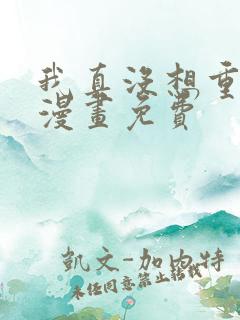 我真没想重
漫畫免費
凱文-加內特
未经同意禁止转载